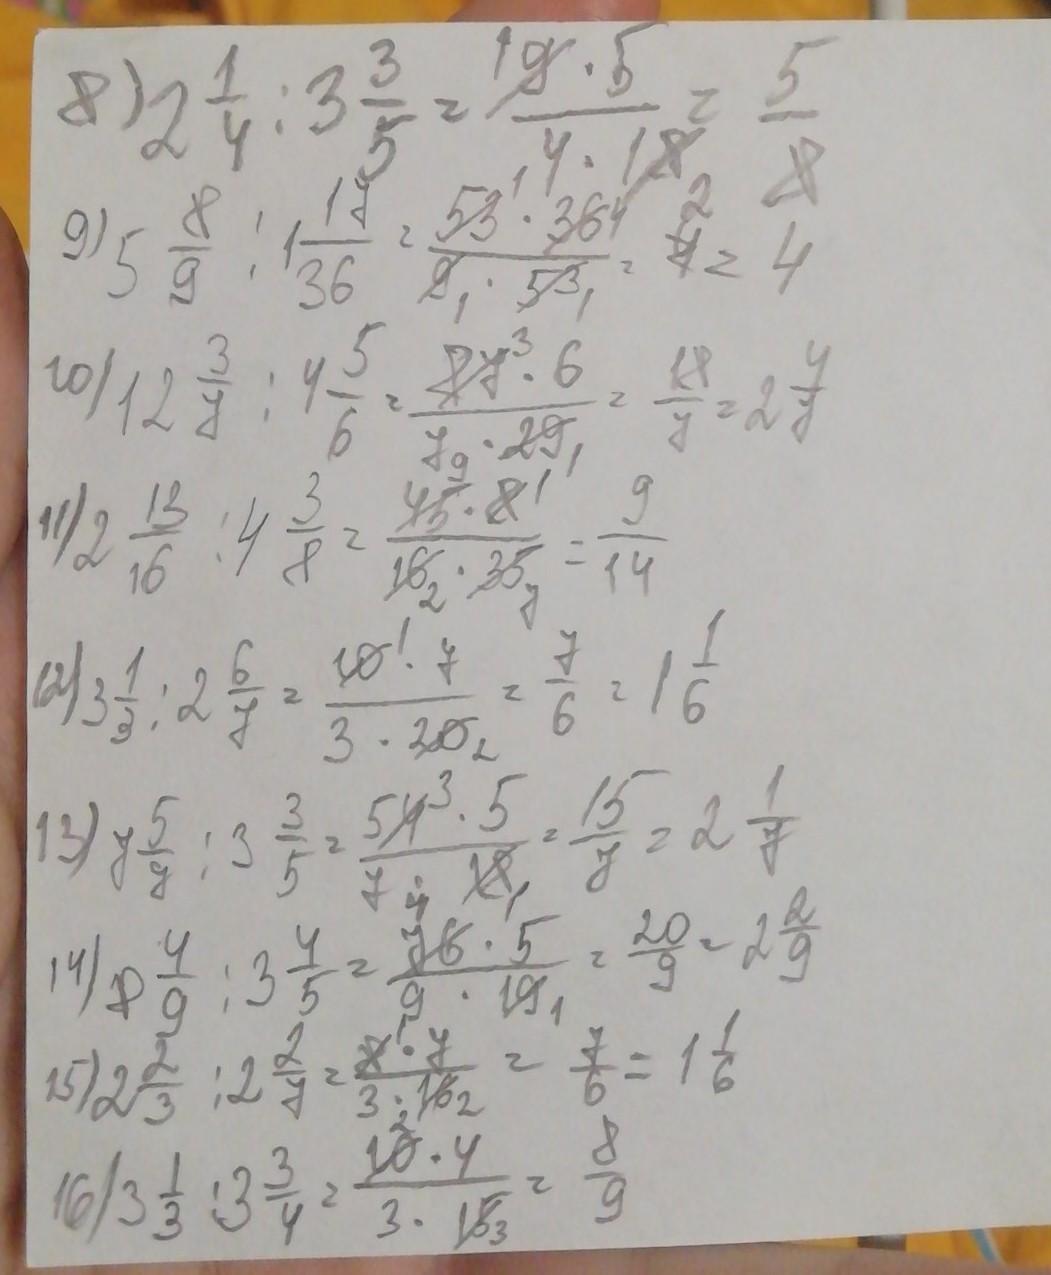 8) 2 1/4 : 3 3/5 = 9 · 5 / 4 · 18 = 5/8
9) 5 8/9 : 1 17/36 = 53 · 36 / 9 · 53 = 4 = 4
10) 12 3/7 : 4 5/6 = 87 · 6 / 7 · 29 = 18/7 = 2 4/7
11) 2 13/16 : 4 3/8 = 45 · 8 / 16 · 35 = 9/14
12) 3 1/3 : 2 6/7 = 10 · 7 / 3 · 20 = 7/6 = 1 1/6
13) 7 5/7 : 3 3/5 = 54 · 5 / 7 · 18 = 15/7 = 2 1/7
14) 8 4/9 : 3 4/5 = 76 · 5 / 9 · 19 = 20/9 = 2 2/9
15) 2 2/3 : 2 2/7 = 8 · 7 / 3 · 16 = 7/6 = 1 1/6
16) 3 1/3 : 3 3/4 = 10 · 4 / 3 · 15 = 8/9